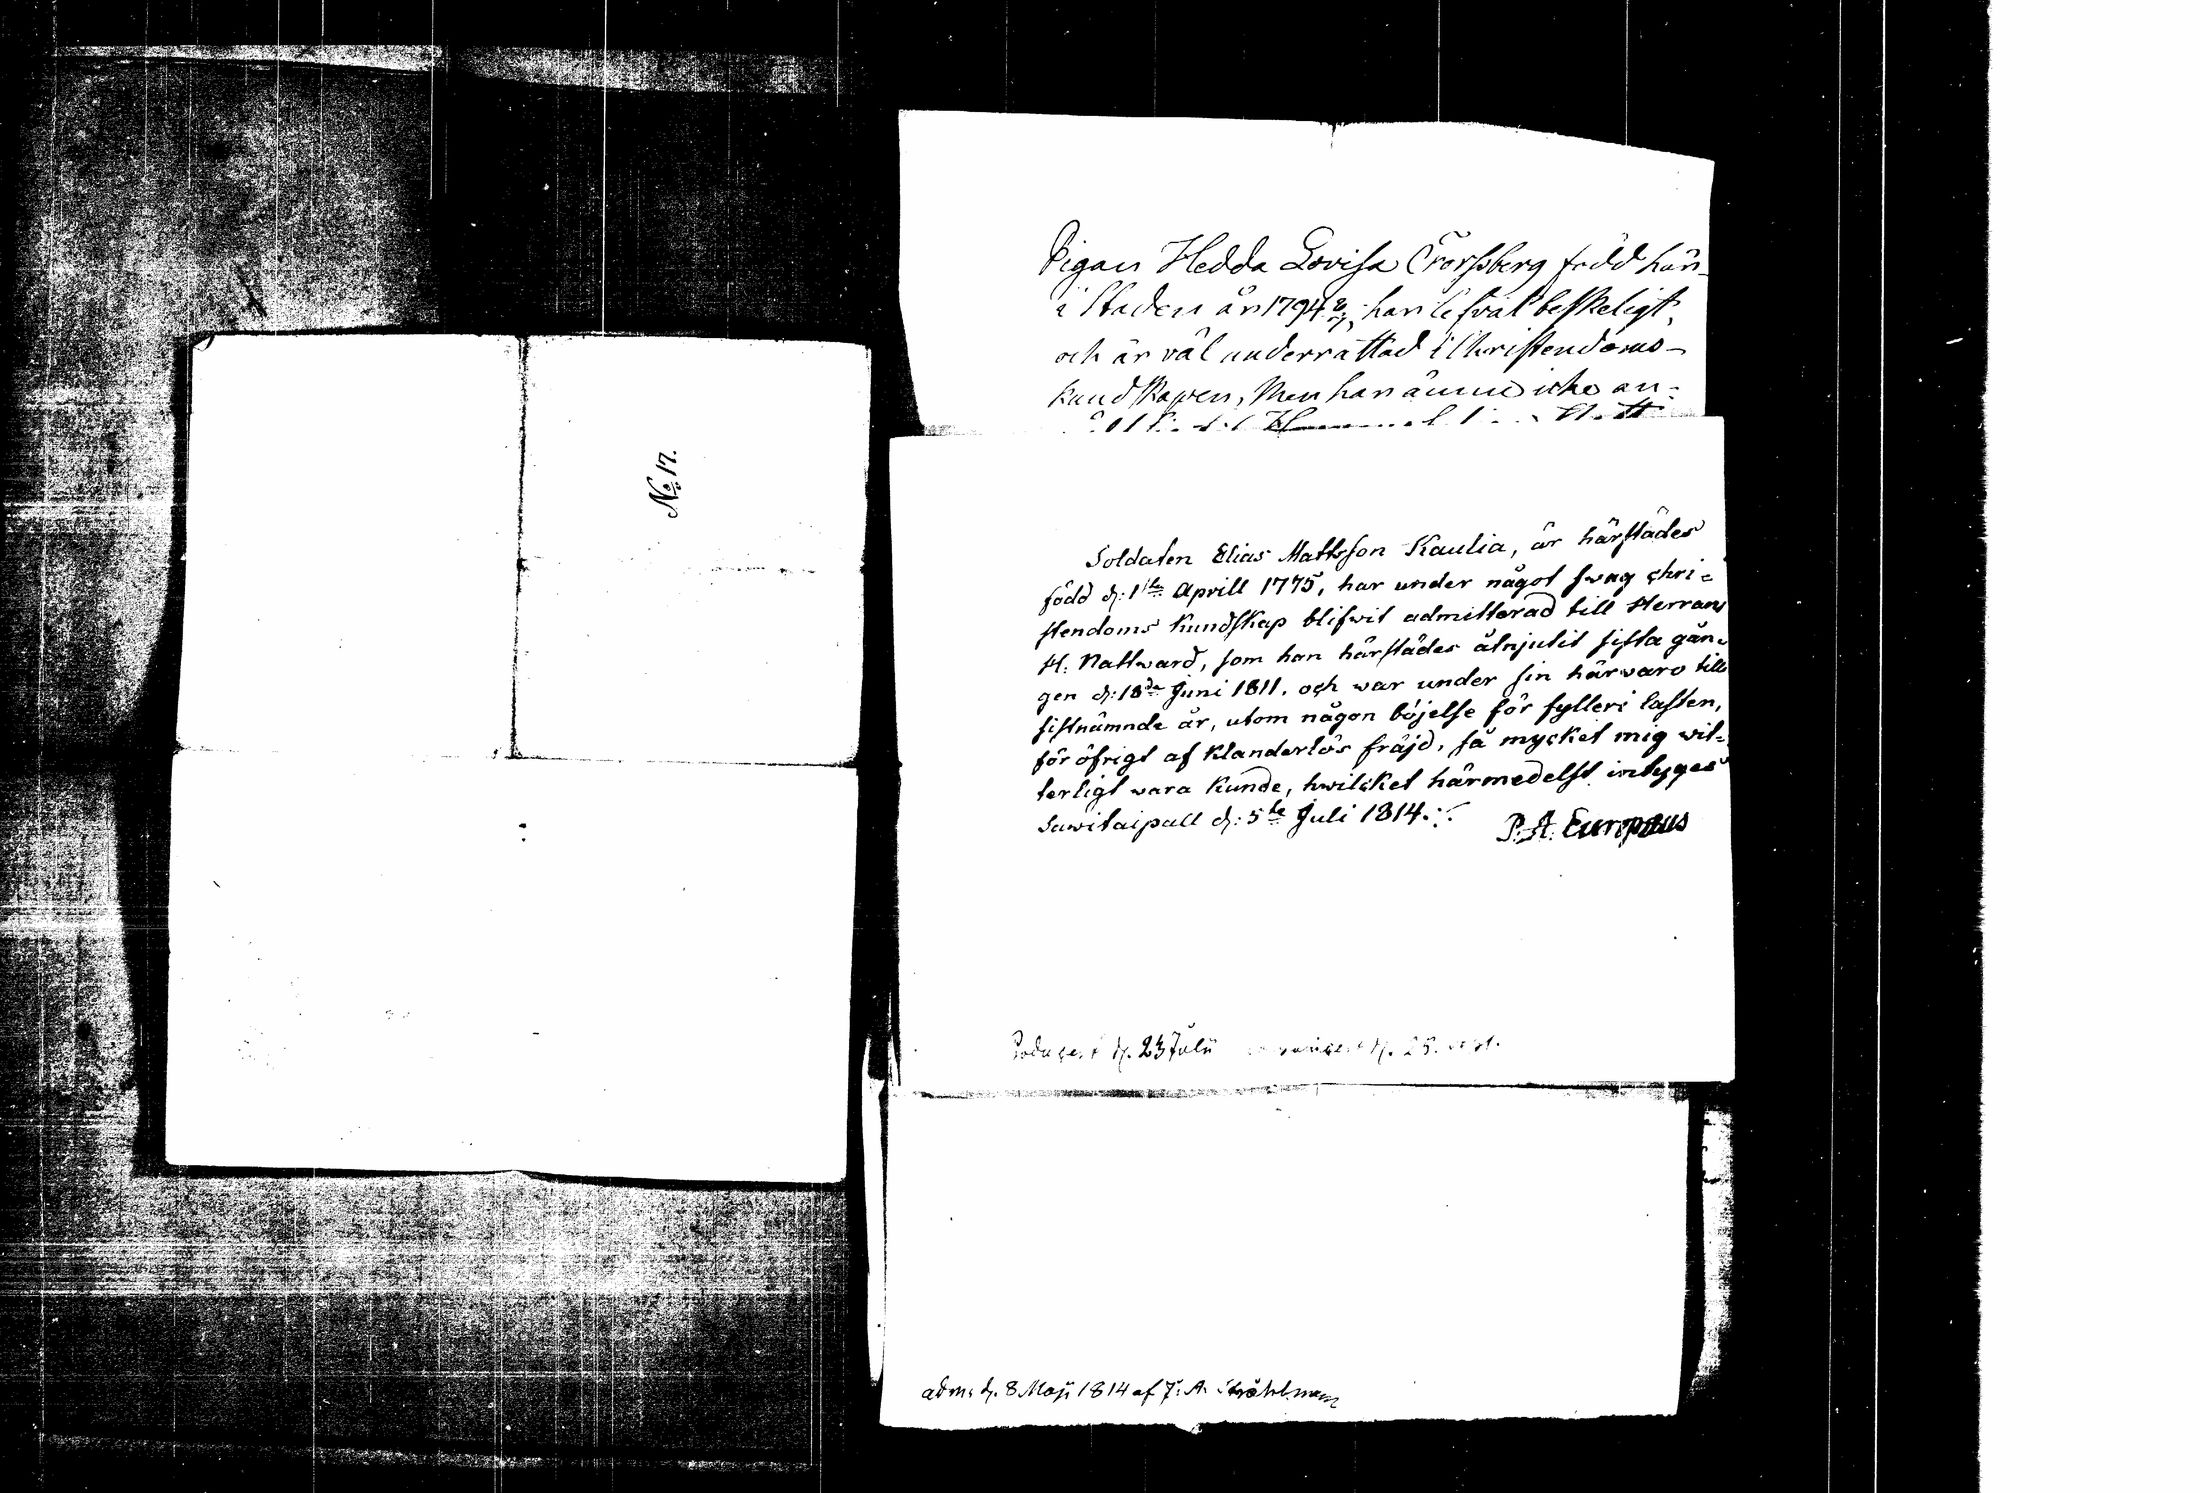 No 17.
Pigan Hedda Lovisa Forssberg född här
i Staden år 1794 8/7, har lefvat beskeligt,
och är väl underrättad i Christendoms-
kundskapen, Men har ännu icke an-
Soldaten Elias Mattsson Kaulia, är härstädes
född d: 1ste Aprill 1775, har under något swag chri-
stendoms kundskap blifwit admitterad till Herrans
H. Nattward, som han härstädes åtnjutit sista gån-
gen d: 18de Juni 1811. och war under sin härvaro till
sistnämnde år, utom någon böjelse för fylleri lasten,
för öfrigt af klanderlös fräjd, så mycket mig wit-
terligt vara kunde, hwilcket härmedelst intyges
Sawitaipall d: 5te Juli 1814.
P. A. Europæus
d. 23 Julii d. 25.
adm. d. 8 Maji 1814 af J. A. Ståhlman